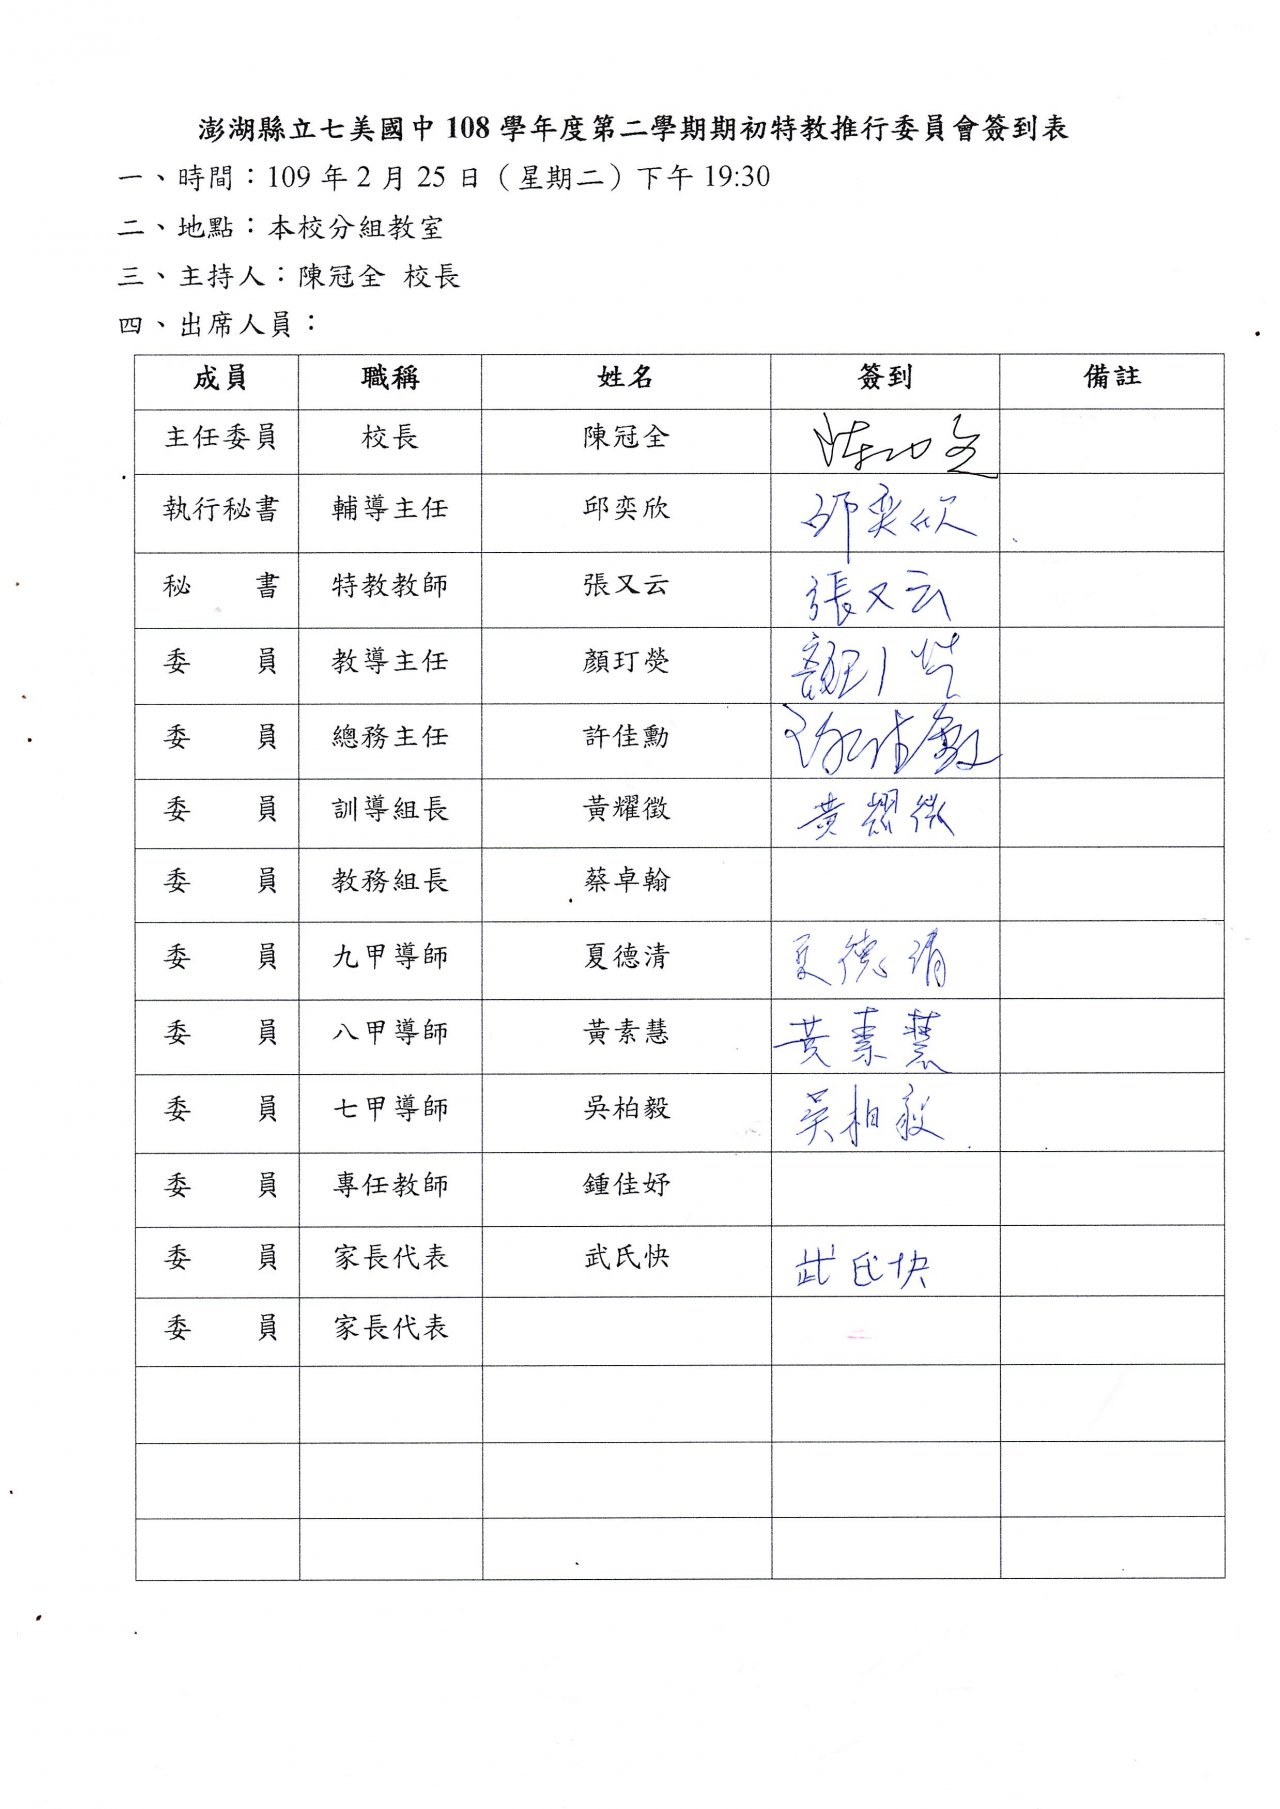 澎湖縣立七美國中 108 學年度第二學期期初特教推行委員會簽到表
一、時間：109 年 2 月 25 日（星期二）下午 19:30
二、地點：本校分組教室
三、主持人：陳冠全 校長
四、出席人員：
成員 職稱 姓名 簽到 備註
主任委員 校長 陳冠全 陳冠全
執行秘書 輔導主任 邱奕欣 邱奕欣
秘 書 特教教師 張又云 張又云
委 員 教導主任 顏玎熒
委 員 總務主任 許佳勳 許佳勳
委 員 訓導組長 黃耀徵 黃耀徵
委 員 教務組長 蔡卓翰
委 員 九甲導師 夏德清 夏德清
委 員 八甲導師 黃素慧 黃素慧
委 員 七甲導師 吳柏毅 吳柏毅
委 員 專任教師 鍾佳妤
委 員 家長代表 武氏快 武氏快
委 員 家長代表